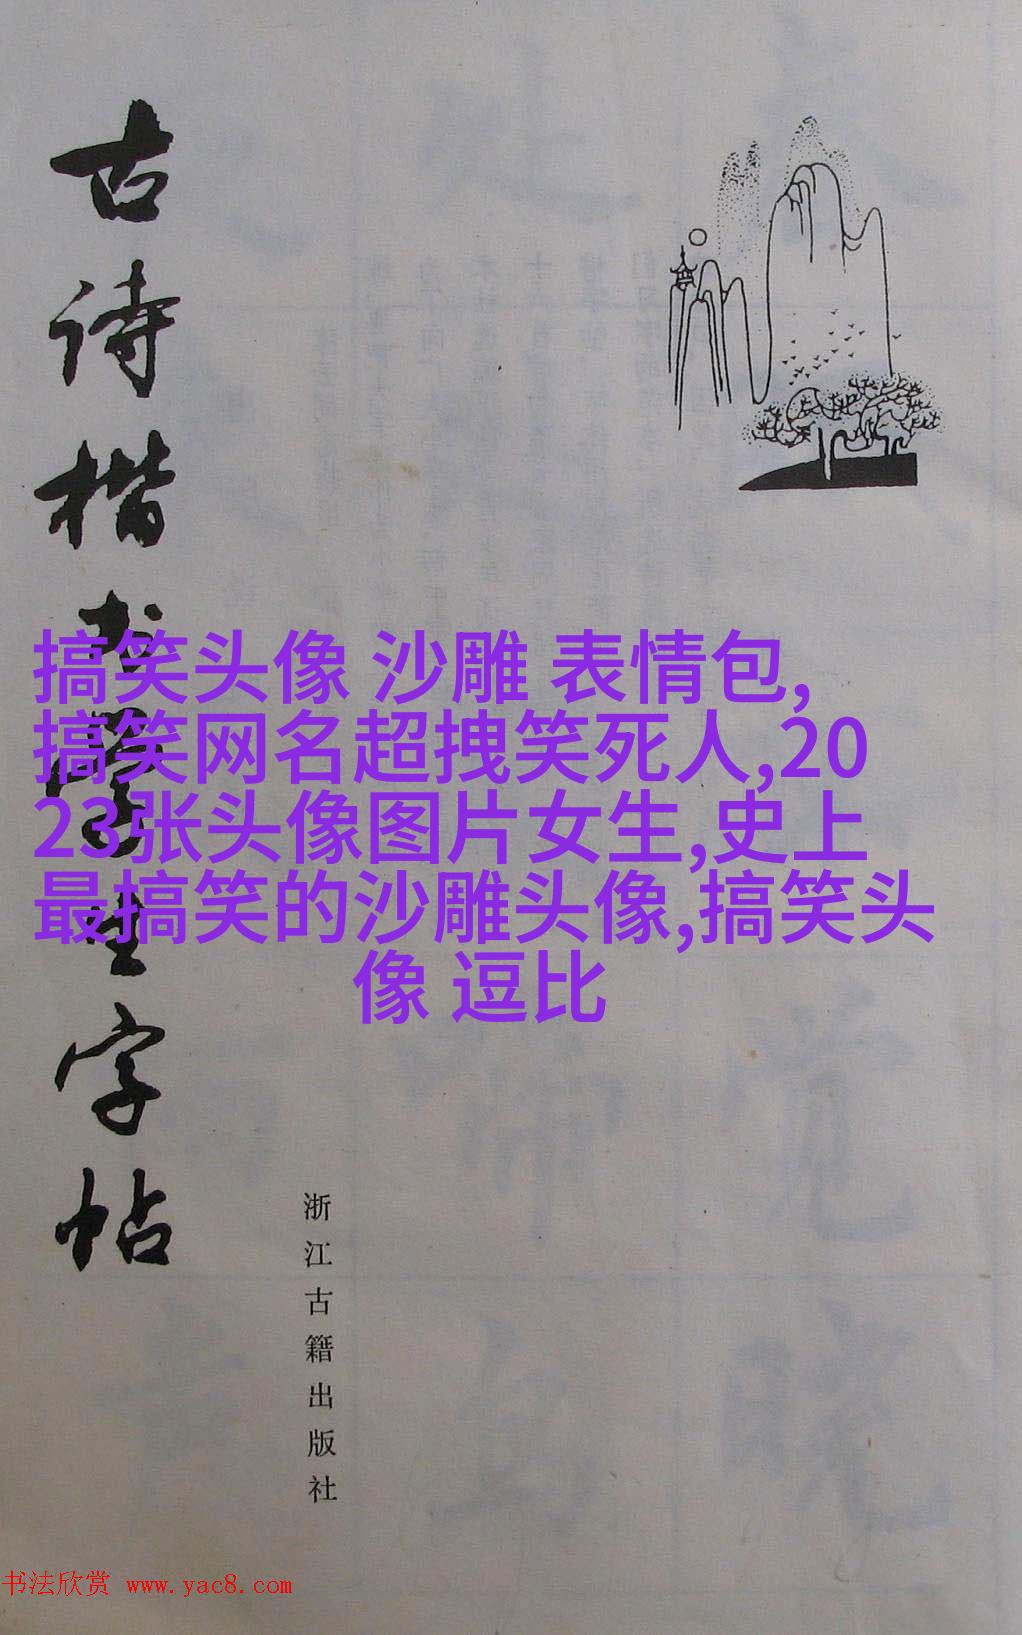 古诗楷书学生字帖
搞笑头像 沙雕 表情包,
搞笑网名超拽笑死人,20
23张头像图片女生,史上
最搞笑的沙雕头像,搞笑头
像 逗比
浙江古籍出版社
书法欣赏 www.yac8.com